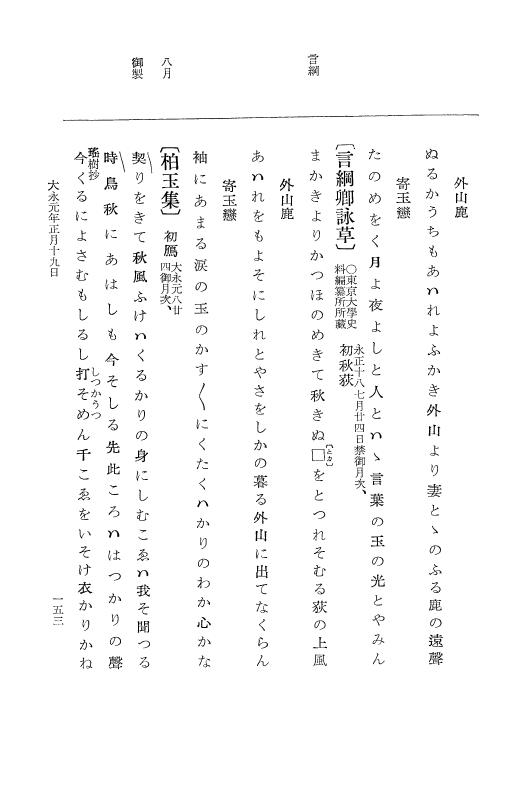 外山鹿
ぬるかうちもあハれよふかき外山より妻とゝのふる鹿の遠聲
寄玉戀
たのめをく月よ夜よしと人とハゝ言葉の玉の光とやみん
〔言綱卿詠草〕○東京大學史料編纂所所藏 永正十八七月廿四日禁御月次、初秋荻
言綱
まかきよりかつほのめきて秋きぬ□〔とカ〕をとつれそむる荻の上風
外山鹿
あハれをもよそにしれとやさをしかの暮る外山に出てなくらん
寄玉戀
袖にあまる涙の玉のかす〱にくたくハかりのわか心かな
〔柏玉集〕初鴈 大永元八廿四御月次、
八月
御製
契りをきて秋風ふけハくるかりの身にしむこゑハ我そ聞つる
時鳥秋にあはしも今そしる先此ころハはつかりの聲
瑤樹抄
今くるによさむもしるし打そめん千こゑをいそけ衣かりかね
しつかうつ
大永元年正月十九日
一五三